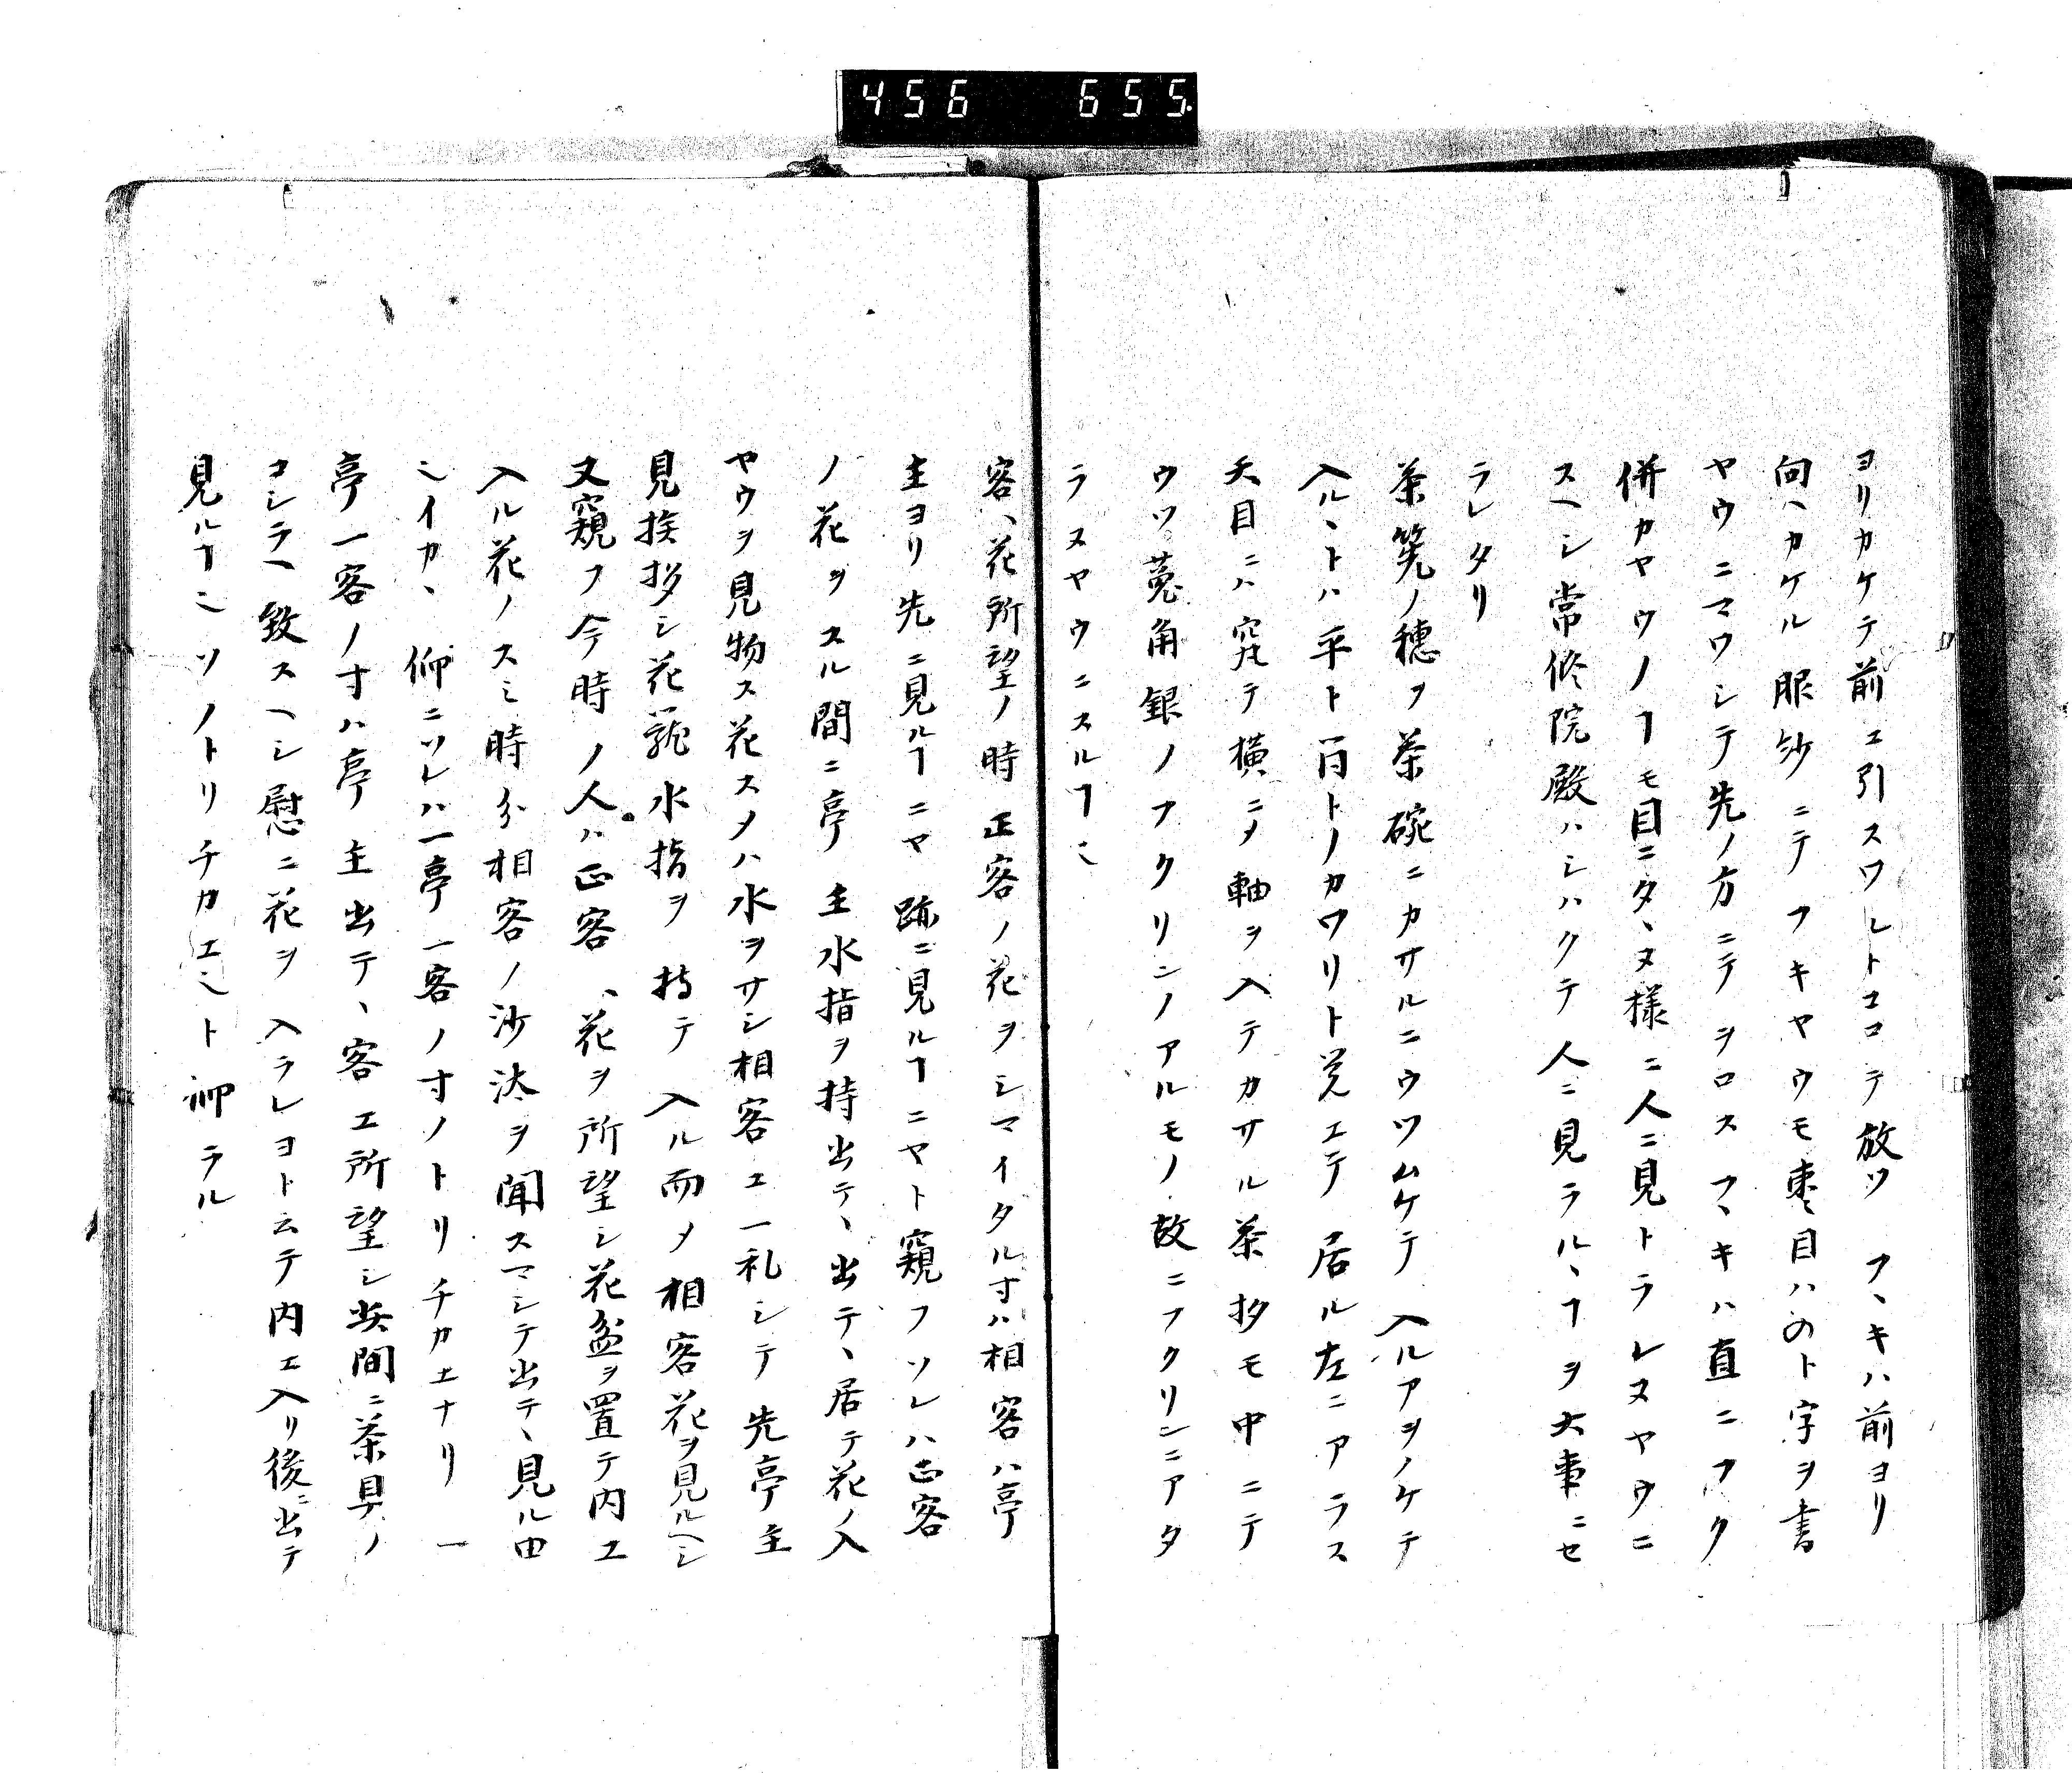 456 655
ヨリカケテ前エ引スワルトコロテ放ツ フヽキハ前ヨリ
向ヘカケル服紗ニテ フキヤウモ棗目ハのト字ヲ書
ヤウニマワシテ先ノ方ニテヲロス フヽキハ直ニフク
併カヤウノヿモ目ニタヽヌ様ニ人ニ見トラレヌヤウニ
スヘシ常修院殿ハシハクテ人ニ見ラルヽヿヲ大事ニセ
ラレタリ
茶筅ノ穂ヲ茶碗ニカサルニウツムケテ 入ルアヲノケテ
入ルヽトハ平ト筒トノカワリト覚エテ居ル左ニアラス
天目ニハ穴ヘテ横ニメ軸ヲ入テカサル茶抄モ中ニテ
ウツ菟角銀ノフクリンノアルモノ故ニフクリンニアタ
ラヌヤウニスルヿニ
客ヽ花所望ノ時正客ノ花ヲシマイタル寸ハ相客ハ亭
主ヨリ先ニ見ルヿニヤ跡ニ見ルヿニヤト窺フソレハ正客
ノ花ヲスル間ニ亭主水指ヲ持出テヽ出テヽ居テ花ノ入
ヤウヲ見物ス花スメハ水ヲサシ相客エ一礼シテ先亭主
見挨拶シ花瓶水指ヲ持テ入ル而メ相客花ヲ見ルヘシ
又窺フ今時ノ人ハ正客ヽ花ヲ所望シ花盆ヲ置テ内エ
入ル花ノスミ時分相客ノ沙汰ヲ聞スマシテ出テヽ見ル由
シイカヽ仰ニソレハ一亭一客ノ寸ノトリチカエナリ一
亭一客ノ寸ハ亭主出テヽ客エ所望シ其間ニ茶具ノ
コシラヘ致スヘシ慰ニ花ヲ入ラレヨト云テ内エ入リ後ニ出テ
見ルヿニソノトリチカエニト仰ラル